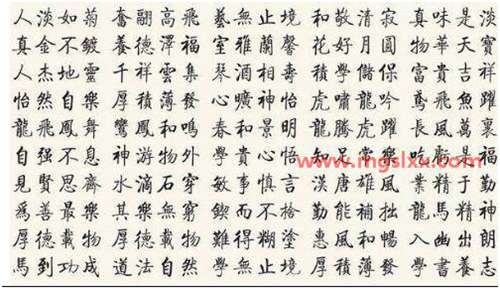 人淡如菊 奮翮高飛 藝無止境 和敬清寂 真味是淡
真金不鍍 養德澤福 室雅蘭馨 花好月圓 物華天寶
人杰地靈 千祥雲集 琴 相壽 學儲 富貴吉祥
怡然自樂 厚積薄發 曠 怡 虎嘯龍吟 鳶飛魚躍
龍飛鳳舞 鸞鳳和鳴 春和景明 龍騰虎躍 長風萬里
自强不息 神游物外 學貴心悟 知足常樂 是福
見賢思齊 水滴石穿 敏事慎言 漢唐雄風 業精于勤
為善最樂 其樂無窮 而不 勤能補拙 龍馬精神
厚德載物 難得糊塗 惠風和暢 入幽出朗
馬到功成 道法自然 學無止境 厚積薄發 學書養志
www.mgslxx.com